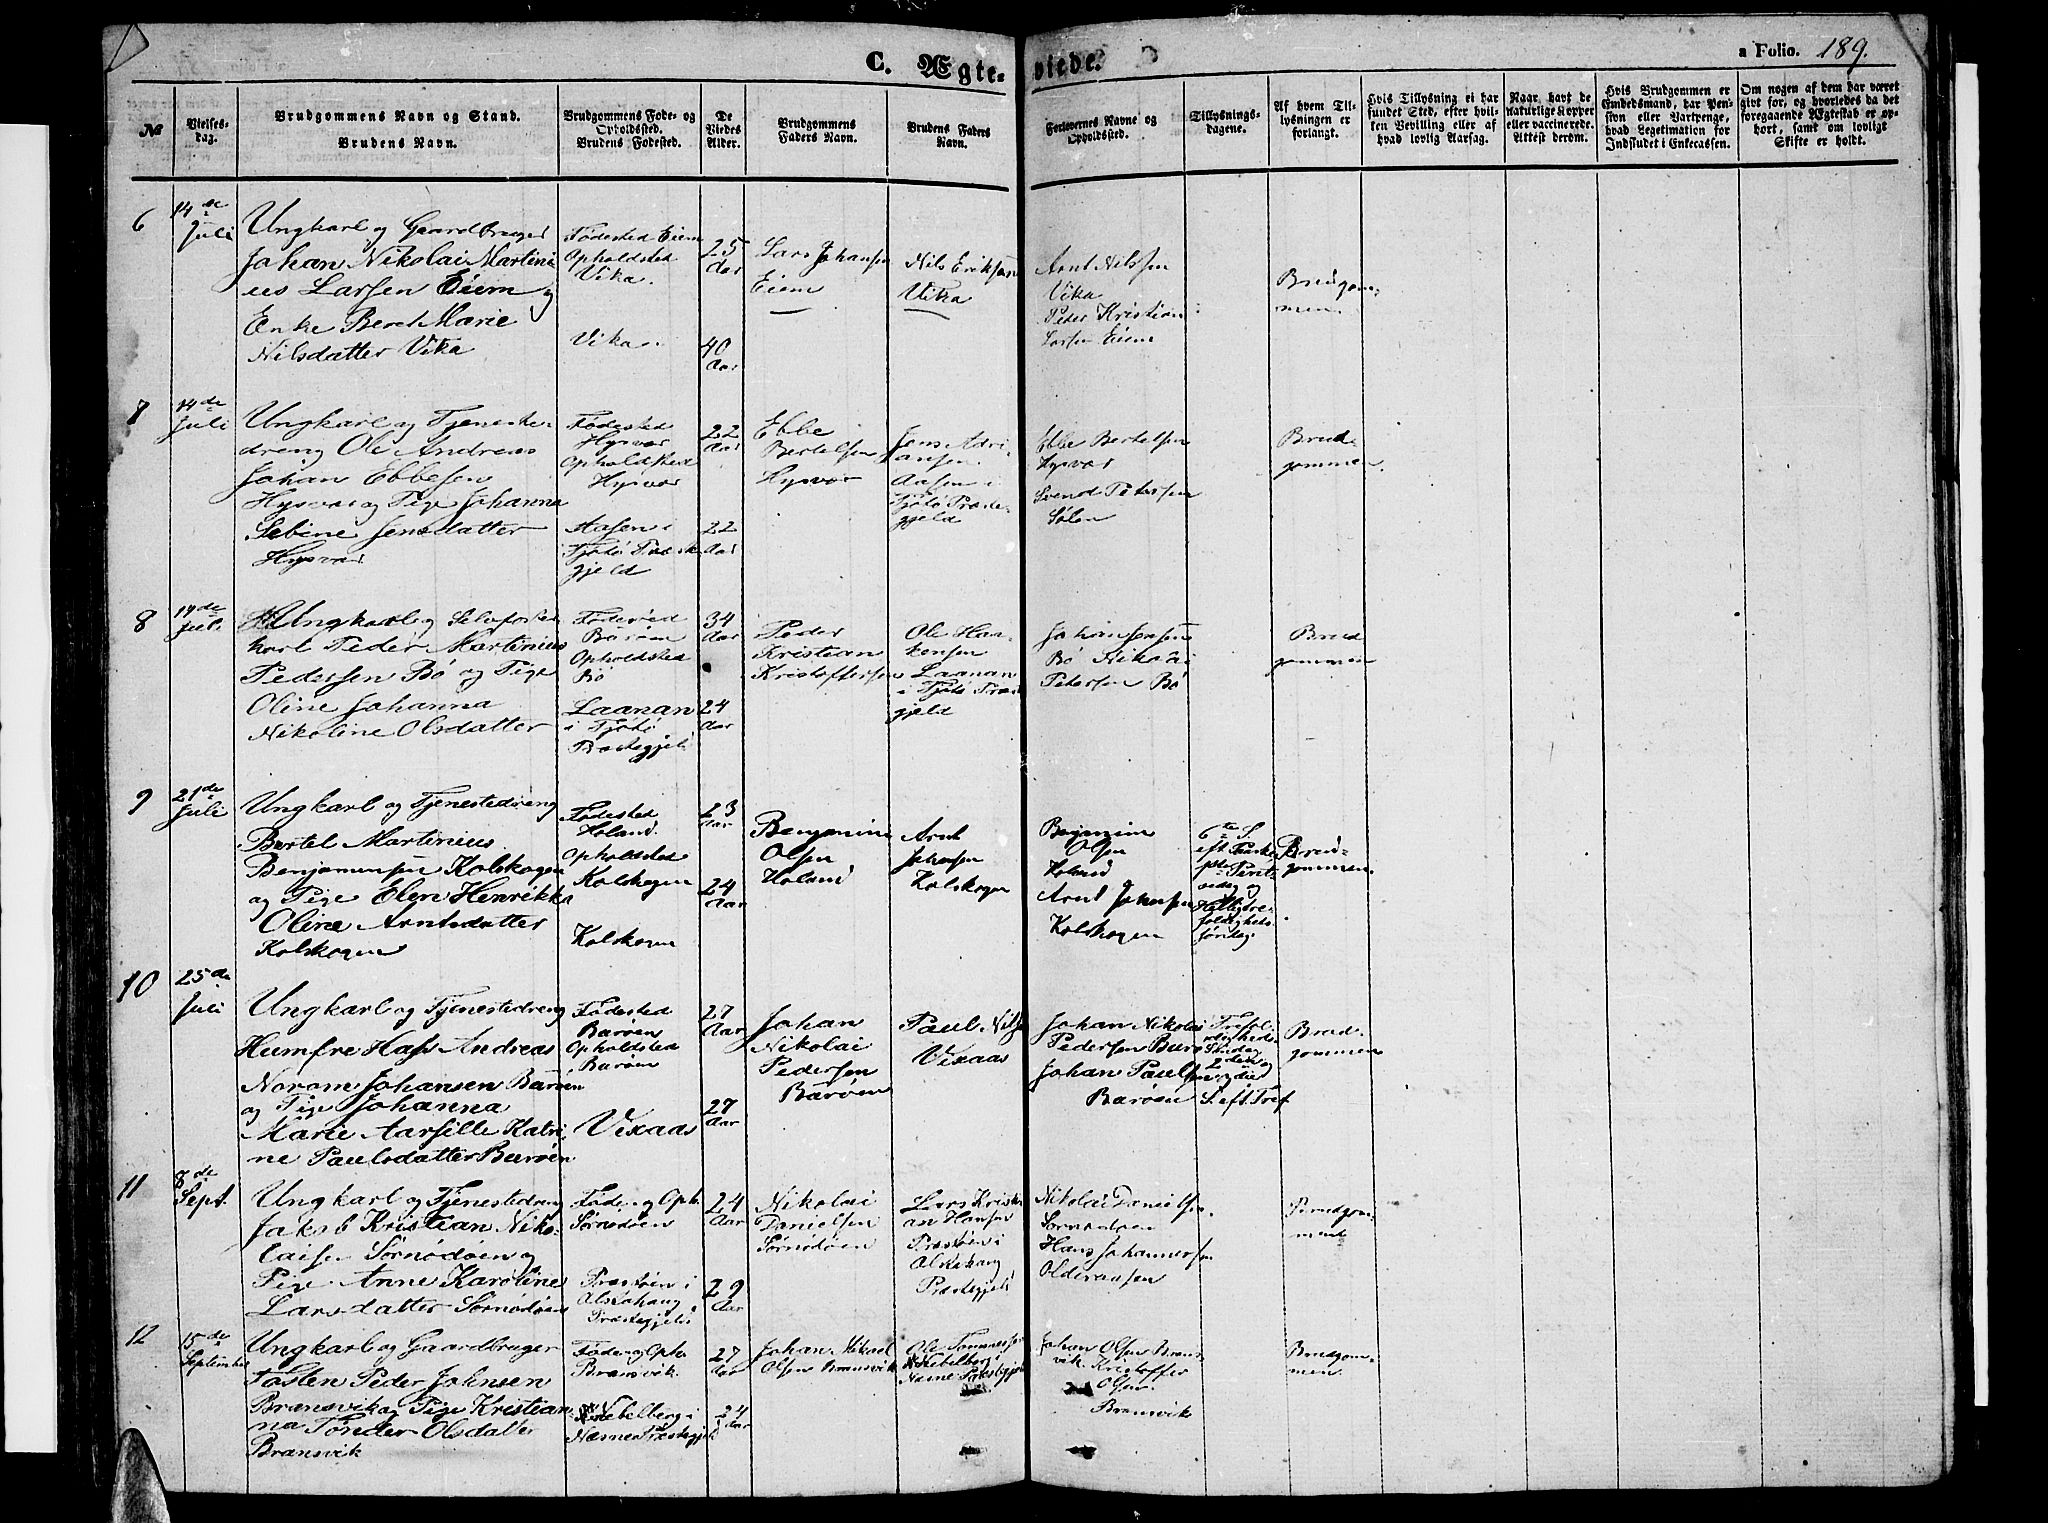 C. Ægteviede.
a Folio. 189.
No
Vielsesdag.
Brudgommens Navn og Stand.
Brudens Navn.
Brudgommens Føde- og
Opholdsted.
Brudens Fødested.
De
Viedes
Alder.
Brudgommens
Faders Navn.
Brudens Faders
Navn.
Forlovernes Navne og
Opholdssted.
Tillysnings-
dagene.
Af hvem Til-
lysningen er
forlangt.
Hvis Tillysning ei har
fundet Sted, efter hvil-
ken Bevilling eller af
hvad lovlig Aarsag.
Naar havt de
naturlige Kopper
eller vaccinerede.
Attest derom.
Hvis Brudgommen er
Embedsmand, har Pen-
sion eller Vartpenge,
hvad Legetimation for
Indskudet i Enkecassen.
Om nogen af dem har været
givt for, og hvorledes da det
foregaaende Ægteskab er op-
hørt, samt om lovligt
Skifte er holdt.
6
14de
Juli
Ungkarl og Gaardbruger
Johan Nikolai Martini
us Larsen Eiem og
Enke Beret Marie
Nilsdatter Vika
Fødested Eiem
Opholdsted
Vika.
Vika.
25
Aar
40
Aar
Lars Johansen
Eiem
Nils Eriksen
Vika
Arnt Nilssen
Vika
Peder Kristian
Larsen Eiem
Brudgom-
men.
7
14de
Juli
Ungkarl og Tjeneste-
dreng Ole Andreas
Johan Ebbesen
Hysvær og Pige Johanna
Sebine Jensdatter
Hysvær
Fødested
Hysvær
Opholdsted
Hysvær
Aasen i
Tjøtø Præste
gjeld
22
Aar
22
Aar
Ebbe
Bertelsen
Hysvær
Jens Adri
ansen
Aasen i
Tjøtø Præste-
gjeld
Ebbe Bertelsen
Hysvær
Svend Petersen
Sølen
Brud-
gommen.
8
14de
Juli
Ungkarl og Selvfoster
karl Peder Martinius
Pedersen Bø og Pige
Oline Johanna
Nikoline Olsdatter
Fødested
Barøen
Opholdsted
Bø
Laanan
i Tjøtø
Præstegjeld
34
Aar
24
Aar
Peder
Kristian
Kristoffersen
Ole Haa-
kensen
Laanan
i Tjøtø Præste
gjeld
Bø Nikolai
Petersen Bø
Brud
gommen
9
21de
Juli
Ungkarl og Tjenestedreng
Bertel Martinius
Benjaminsen Kolskogen
og Pige Elen Henrikka
Oline Arntsdatter
Kolskogen
Fødested
Holand.
Opholdsted
Kolskogen
Kolskogen
23
Aar
24
Aar
Benjamin
Olsen
Holand
Arnt
Johansen
Kolskogen
Benjamin
Olsen
Holand
Arnt Johansen
Kolskogen
6te S.
eft Paaske
Brud-
gommen.
10
25de
Juli
Ungkarl og Tjenestedreng
Humfre Hass Andreas
Norom Johansen Barøen
og Pige Johanna
Marie Aarsille Katri
ne Paulsdatter Barøen
Fødested
Barøen
Opholdsted
Barøen
Vixaas
27
Aar
27
Aar
Johan
Nikolai
Pedersen
Barøen
Paul Nils
Vixaas
Johan Nikolai
Pedersen Barø
Johan Paulsen
Barøen
S. eft. Tref
Brud-
gommen
11
8de
Sept.
Ungkarl og Tjenestedreng
Jakob Kristian Niko-
laisen Sørnødøen og
Pige Anne Karoline
Larsdatter Sørnødøen
Føde og Oph.
Sørnødøen
Præstøen i
Alstahaug
Præstegjeld
24
Aar
29
Aar
Nikolai
Danielsen
Sørnødøen
Lars Kristi
an Hansen
Præstøen i
Alstahaug
Præstegjeld
Nikolai Danielsen
Sørnødøen
Hans Johannersen
Brudgom-
men
12
15de
September
Ungkarl og Gaardbruger
Fosten Peder Johnsen
Brænsvik og Pige Kristian
na Tønder Olsdatter
Brænsvik
Føde og Oph.
Brænsvik.
Næbelberg i
Næsne Præstegjeld
27
Aar
24
Aar
Johan Mikael
Olsen Brænsvik
Ole Tommessen
Næbelberg i
Næsne Præstegjeld
Johan Olsen Bræns
vik Kristoffer
Olsen
Brænsvik
Brudgom-
men.